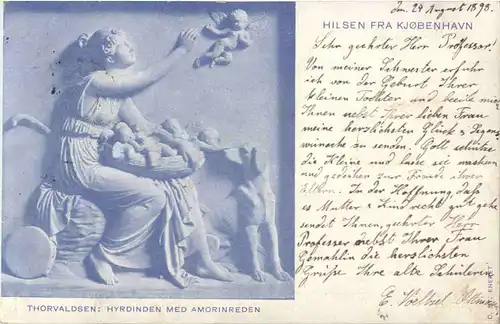 Den 24 August 1898.
HILSEN FRA KJØBENHAVN
Sehr geehrter Herr Professor!
Von meiner Schwester erfuhr
ich von der Geburt Ihrer
kleinen Tochter und beeile mich
Ihnen nebst Ihrer lieben Frau
meine herzlichsten Glück & Segens
wünsche zu senden. Gott schütze
die Kleine und lasse sie wachsen
und gedeihen zur Freude ihrer
Eltern. In der Hoffnung daß
es Mutter & Kind recht gut gehe
sendet Ihnen, geehrter Herr
Professor nebst Ihrer Frau
Gemahlin die herzlichsten
Grüße Ihre alte Schülerin
E.
THORVALDSEN: HYRDINDEN MED AMORINREDEN